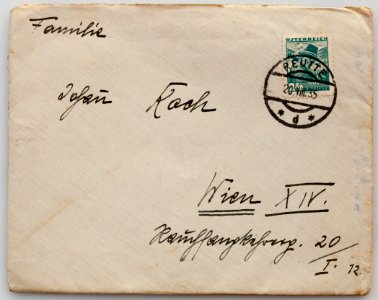 Familie
ÖSTERREICH
REUTTE
20.VIII.35
* d *
Johann Koch
Wien XIV.
Rauchfangkehrerg. 20/I. 12